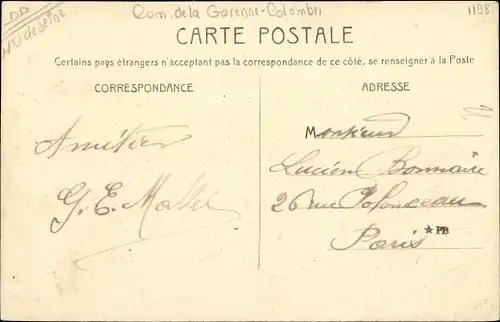 DD
Com. de la Garenne-Colombes
1198
Hts de Seine
CARTE POSTALE
Certains pays étrangers n'acceptant pas la correspondance de ce côté, se renseigner à la Poste
CORRESPONDANCE
ADRESSE
Amitiés
G. E. Mallet
Monsieur
Lucien Bonnaire
26 rue Polonceau
Paris
☆PB